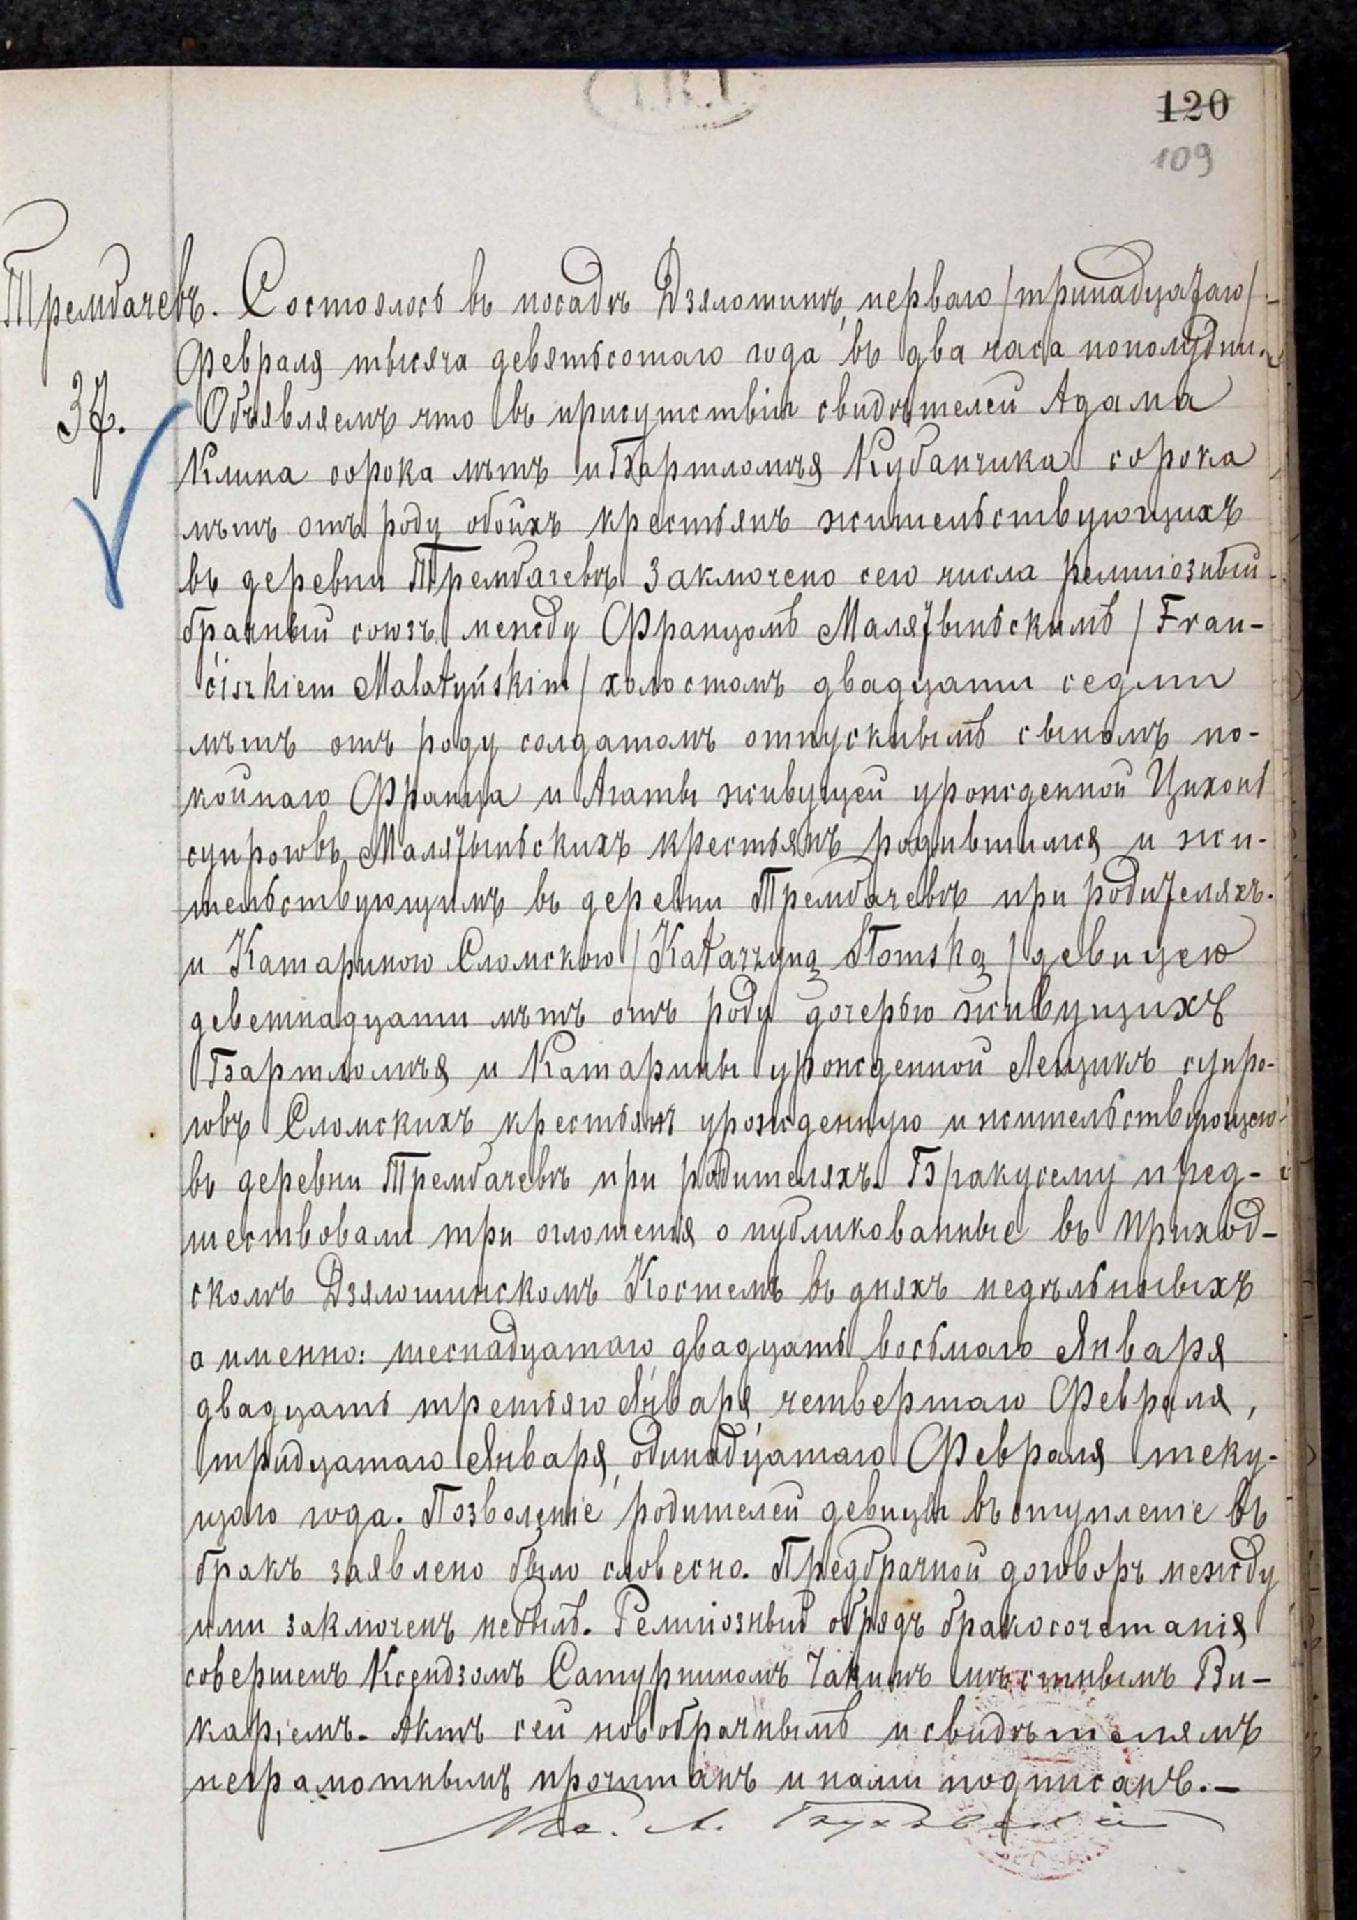 120
109
Трембачевъ. Состоялось въ посадѣ Дзялошинѣ, перваго /тринадцатаго/
Февраля тысяча девятьсотаго года въ два часа пополудни.
37.
Объявляемъ что въ присутствіи свидѣтелей Адама
Клина сорока лѣтъ и Бартломѣя Кубанчика сорока
лѣтъ отъ роду обоихъ крестьянъ жительствующихъ
въ деревни Трембачевѣ заключено сего числа религіозный
брачный союзъ между Францомъ Малятыньскимъ / Fran-
ciszkiem Malatyńskim / холостомъ двадцати седми
лѣтъ отъ роду солдатомъ отпускнымъ сыномъ по-
койнаго Франца и Агаты живущей урожденной Цихонь
супруговъ Малятыньскихъ крестьянъ родившимся и жи-
тельствующимъ въ деревни Трембачевѣ при родителяхъ.
и Катариною Сломскою / Katarzyną Słomską / девицею
деветнадцати лѣтъ отъ роду дочерью живущихъ
Бартломѣя и Катарины урожденной Лещикъ супро-
говъ Сломскихъ крестьянъ урожденную и жительствующею
въ деревни Трембачевѣ при родителяхъ. Бракусему пред-
шествовали три оглошенія опубликованные въ приход-
скомъ Дзялошинскомъ Костелѣ въ дняхъ недѣльныхъ
а именно: шеснадцатаго двадцать восьмаго Января
двадцать третьяго Января, четвертаго Февраля,
тридцатаго Января, одинадцатаго Февраля теку-
щаго года. Позволеніе родителей девицы вступленіе въ
бракъ заявлено было словесно. Предбрачной договоръ между
ими заключенъ небылъ. Религіозный обрядъ бракосочетанія
совершенъ Ксендзомъ Сатурниномъ мѣстнымъ Ви-
каріемъ. Актъ сей новобрачнымъ и свидѣтелямъ
неграмотнымъ прочитанъ и нами подписанъ.—